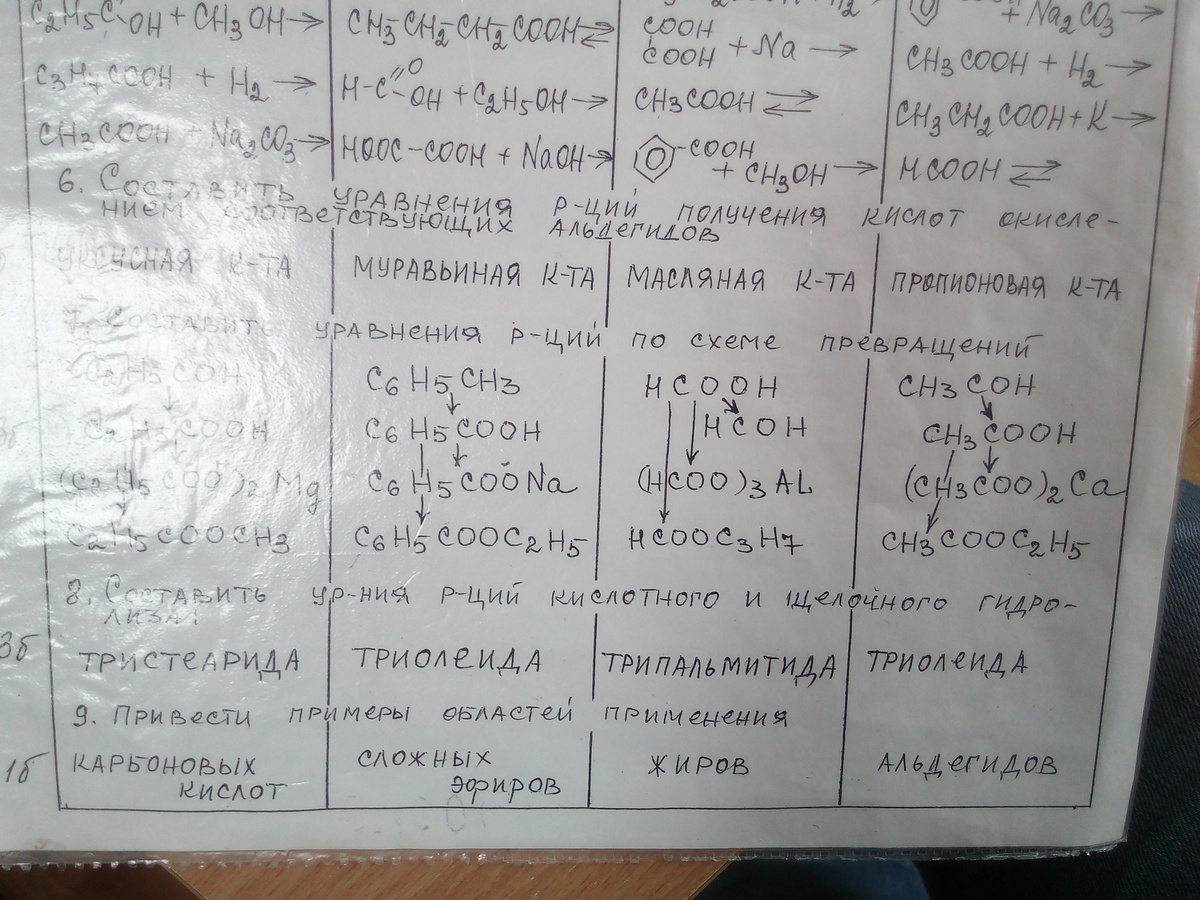 C₂H₅C OH + CH₃OH → CH₃CH₂CH₂COOH ⇄ COOH COOH + Na → + Na₂CO₃ →
C₃H₇COOH + H₂ → H-C=O OH + C₂H₅OH → CH₃COOH ⇄ CH₃COOH + H₂ →
CH₃COOH + Na₂CO₃ → HOOC-COOH + NaOH → -COOH + CH₃OH → CH₃CH₂COOH + K →
HCOOH ⇄
6. СОСТАВИТЬ УРАВНЕНИЯ Р-ЦИЙ ПОЛУЧЕНИЯ КИСЛОТ ОКИСЛЕ-
НИЕМ СООТВЕТСТВУЮЩИХ АЛЬДЕГИДОВ
УКСУСНАЯ К-ТА МУРАВЬИНАЯ К-ТА МАСЛЯНАЯ К-ТА ПРОПИОНОВАЯ К-ТА
7. СОСТАВИТЬ УРАВНЕНИЯ Р-ЦИЙ ПО СХЕМЕ ПРЕВРАЩЕНИЙ
C₂H₅COH C₆H₅CH₃ HCOOH CH₃COH
C₂H₅COOH C₆H₅COOH HCOH CH₃COOH
(C₂H₅COO)₂Mg C₆H₅COONa (HCOO)₃AL (CH₃COO)₂Ca
C₂H₅COOCH₃ C₆H₅COOC₂H₅ HCOOC₃H₇ CH₃COOC₂H₅
8. СОСТАВИТЬ УР-НИЯ Р-ЦИЙ КИСЛОТНОГО И ЩЕЛОЧНОГО ГИДРО-
ЛИЗА:
3б ТРИСТЕАРИДА ТРИОЛЕИДА ТРИПАЛЬМИТИДА ТРИОЛЕИДА
9. ПРИВЕСТИ ПРИМЕРЫ ОБЛАСТЕЙ ПРИМЕНЕНИЯ
1б КАРБОНОВЫХ СЛОЖНЫХ ЖИРОВ АЛЬДЕГИДОВ
КИСЛОТ ЭФИРОВ